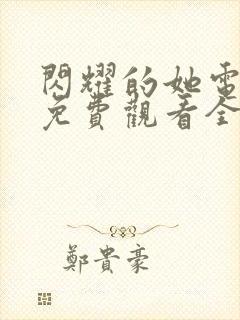 閃耀的她電
免費觀看全
鄭貴豪